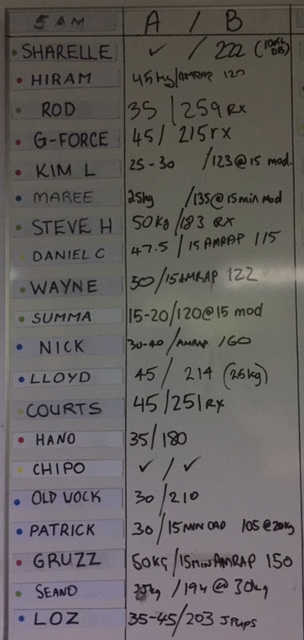 5 AM A / B
SHARELLE ✓ / 222 (10KG DB)
HIRAM 45kg/AMRAP 120
ROD 35 / 259 RX
G-FORCE 45 / 215 rx
KIM L 25-30 / 123 @ 15 mod
MAREE 25kg / 135 @ 15 min mod
STEVE H 50kg / 183 RX
DANIEL C 47.5 / 15 AMRAP 115
WAYNE 50 / 15 AMRAP 122
SUMMA 15-20 / 120 @ 15 mod
NICK 30-40 / AMRAP 160
LLOYD 45 / 214 (25kg)
COURTS 45 / 251 RX
HANO 35 / 180
CHIPO ✓ / ✓
OLD VOCK 30 / 210
PATRICK 30 / 15 MIN CAP 105 @ 20kg
GRUZZ 50KG / 15 min AMRAP 150
SEANO / 194 @ 30kg
LOZ 35-45 / 203 J PUPS